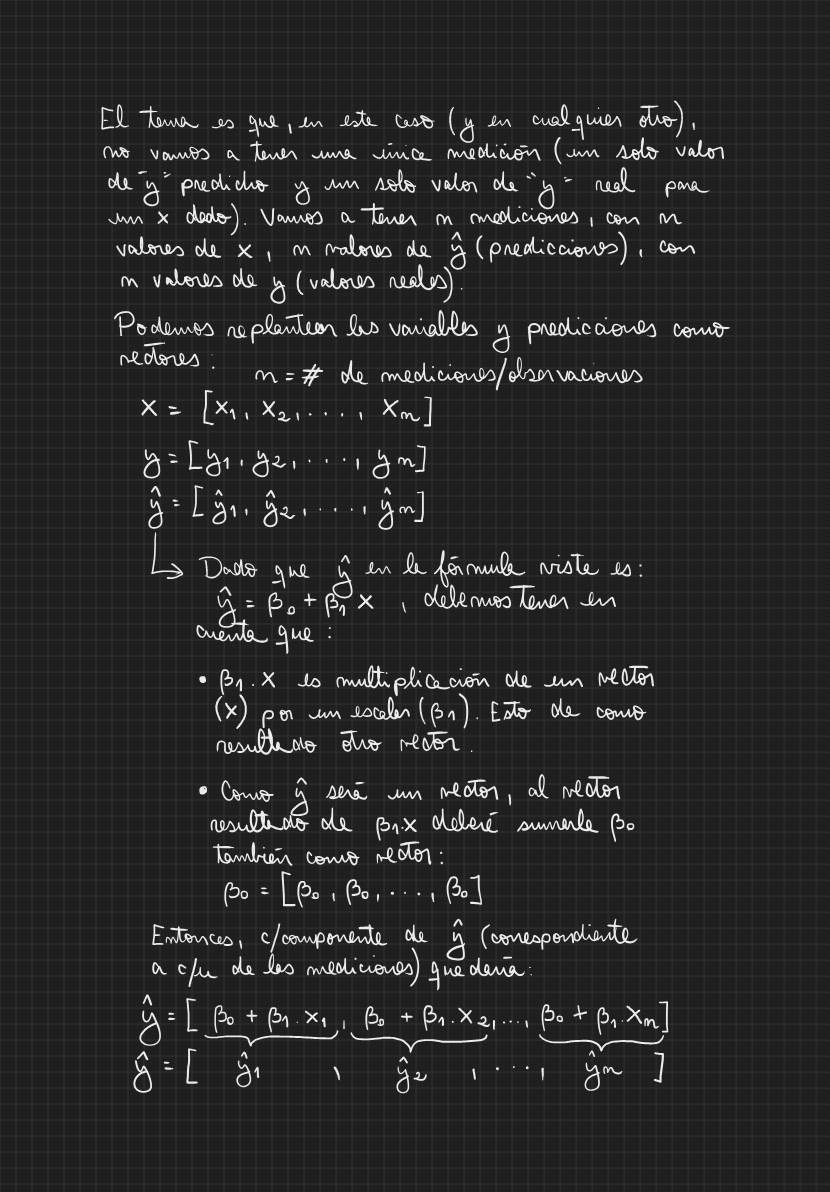 El tema es que, en este caso (y en cualquier otro),
no vamos a tener una única medición (un solo valor
de "y" predicho y un solo valor de "y" real para
un x dado). Vamos a tener n mediciones, con n
valores de x, n valores de ŷ (predicciones), con
n valores de y (valores reales).
Podemos replantear las variables y predicciones como
vectores:
n = # de mediciones/observaciones
x = [x₁, x₂, ...., xₙ]
y = [y₁, y₂, ...., yₙ]
ŷ = [ŷ₁, ŷ₂, ...., ŷₙ]
↳ Dado que ŷ en la fórmula vista es:
ŷ = β₀ + β₁ x , debemos tener en
cuenta que:
• β₁.x es multiplicación de un vector
(x) por un escalar (β₁). Esto da como
resultado otro vector.
• Como ŷ será un vector, al vector
resultado de β₁.x deberé sumarle β₀
también como vector:
β₀ = [β₀, β₀, ..., β₀]
Entonces, c/componente de ŷ (correspondiente
a c/u de las mediciones) quedaría:
ŷ = [β₀ + β₁.x₁, β₀ + β₁.x₂, ..., β₀ + β₁.xₙ]
ŷ = [ ŷ₁ , ŷ₂ , ..., ŷₙ ]